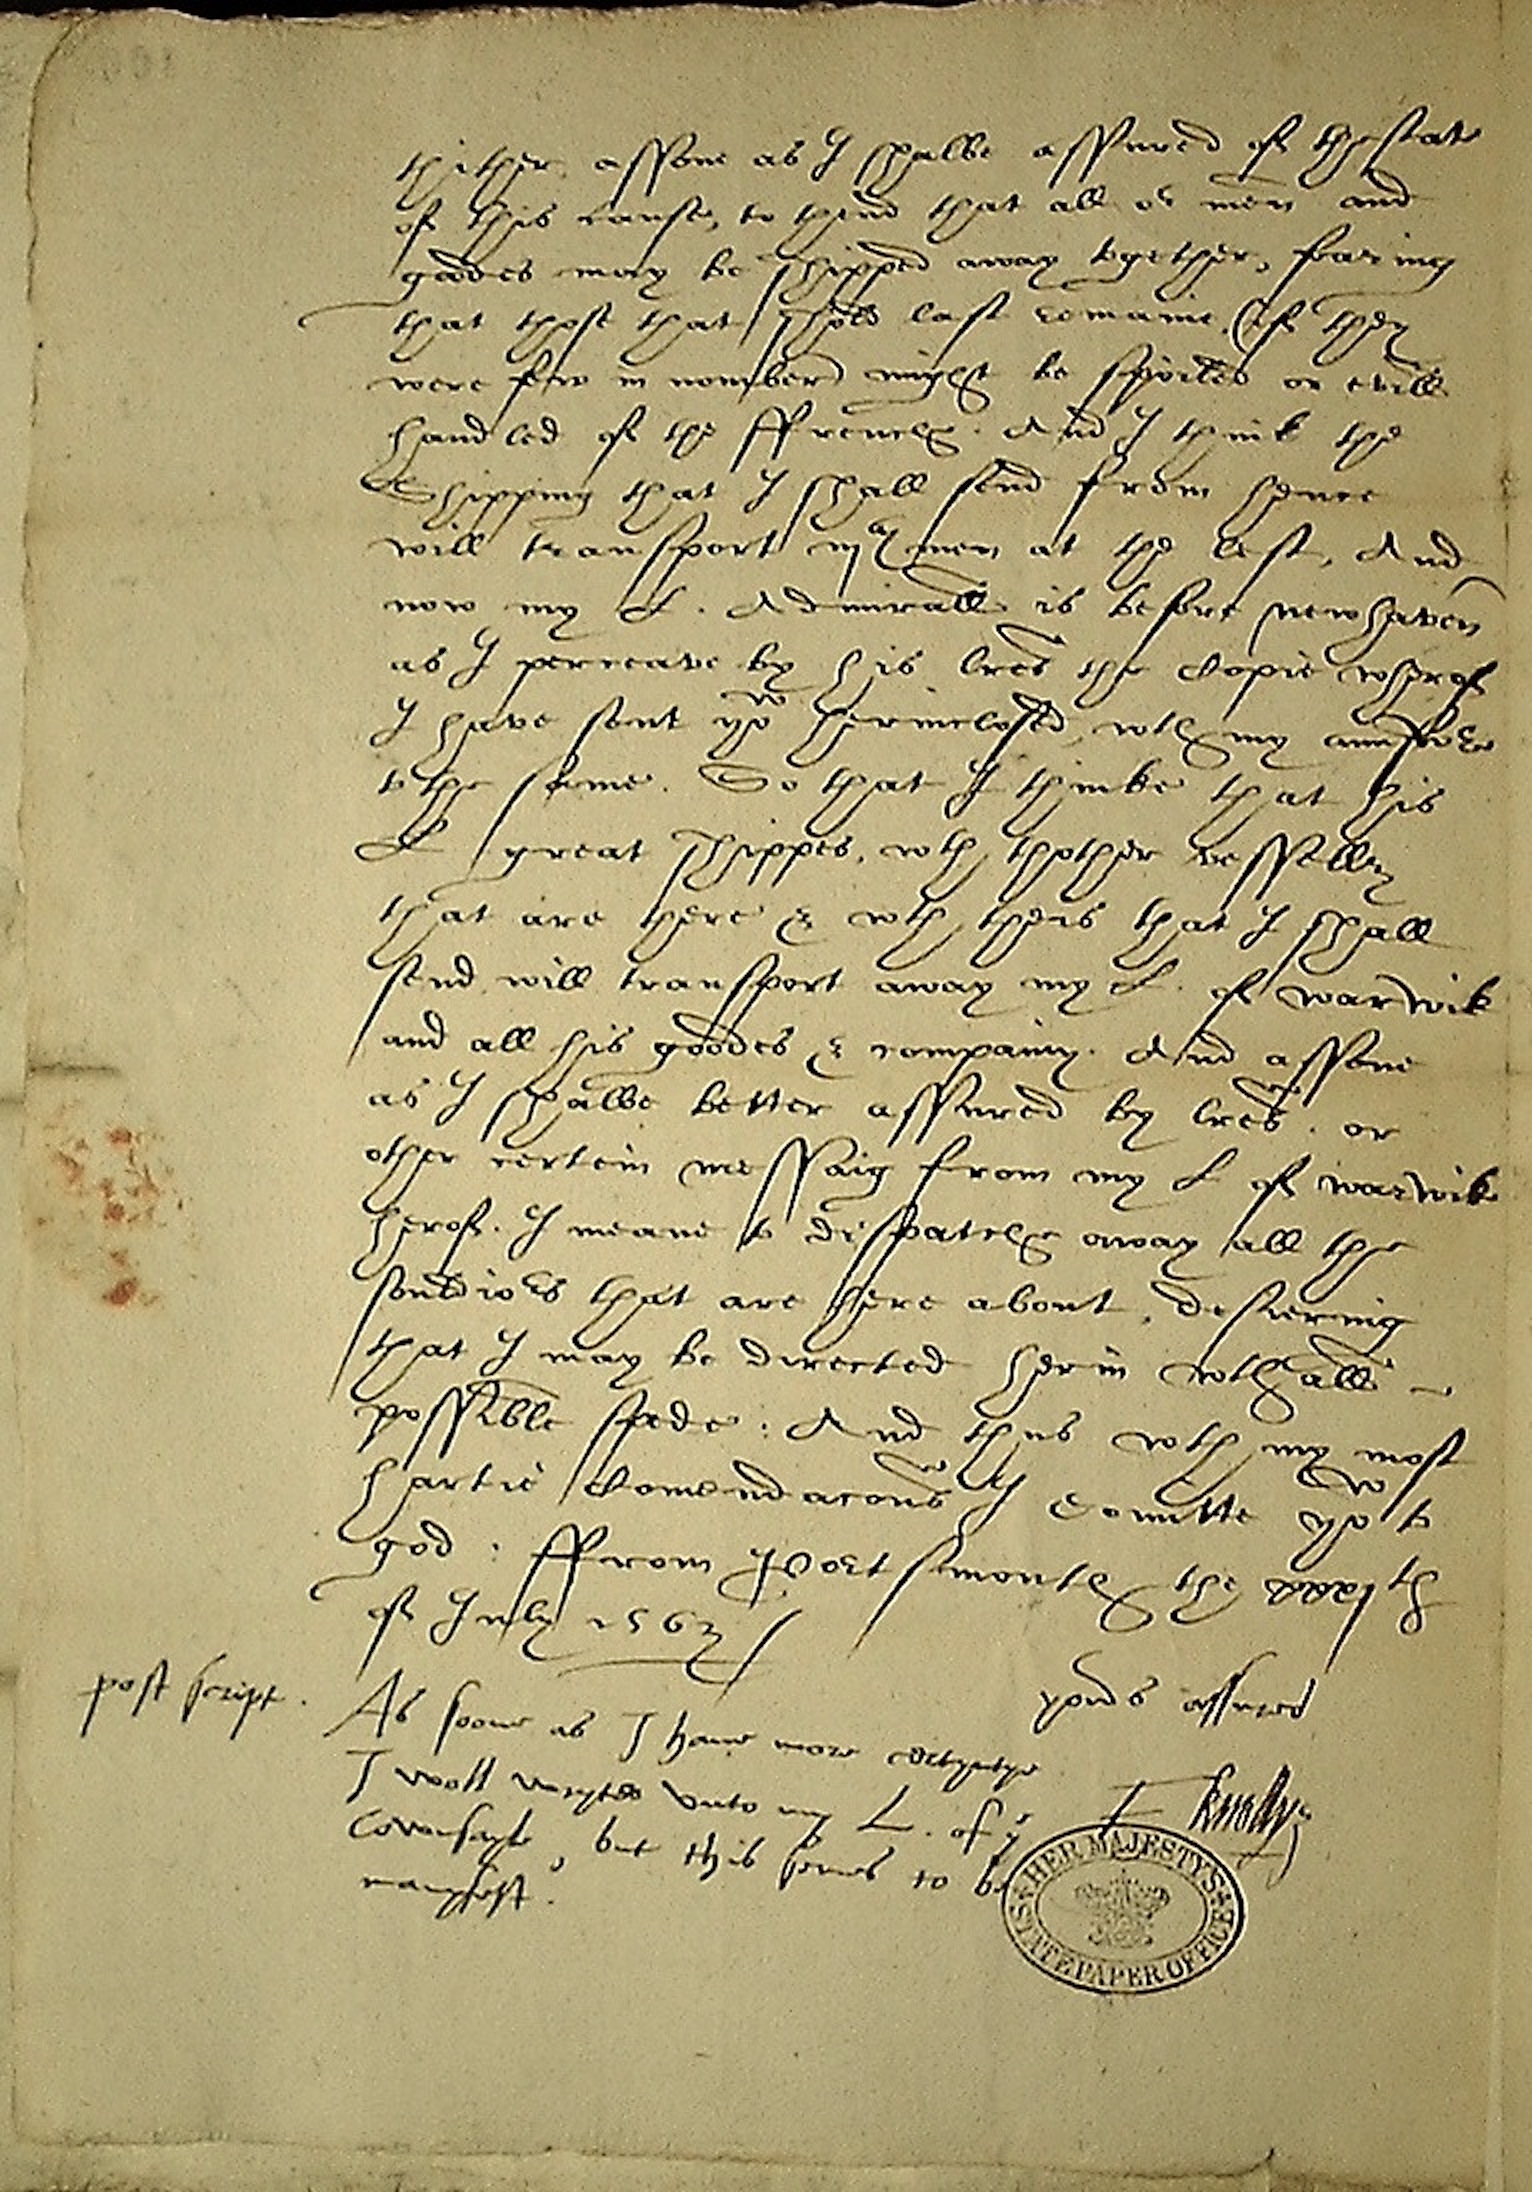 thither assone as I shalbe assured of thestate
of this cause, to thend that all or men and
goodes may be shipped away together, fearing
that those that shold last remaine (if they
were few in nomber) might be spoiled or evill
handled of the ffrench. And I think the
Shipping that I shall send from hence
will transport iijM men at the lest, And
now my L. Admirall is before newhaven
as I perceave by his lres the Copie wherof
I have sent yow herinclosed, wth my answer
to the same. So that I thinke that his
L great shippes, wth thother vesselles
that are there & wth theis that I shall
send will transport away my L. of warwik
and all his goodes & company. And assone
as I shalbe better assured by lres. or
other certein messaig from my L of warwik
herof. I meane to disspatche away all the
souldiors that are here about, desiering
that I may be directed herin wth all
possible spede: And thus wth my most
hartie Comendacons I Comitte yow to
god: ffrom Portesmouth the xxxjth
of July 1563
yours assured
post script.
As soone as I have more certyntye
I woll wryte unto my L. of ye
Cownsayle, but this semes to be
manyfest.
F Knollys
HER MAJESTY'S
STATE PAPER OFFICE